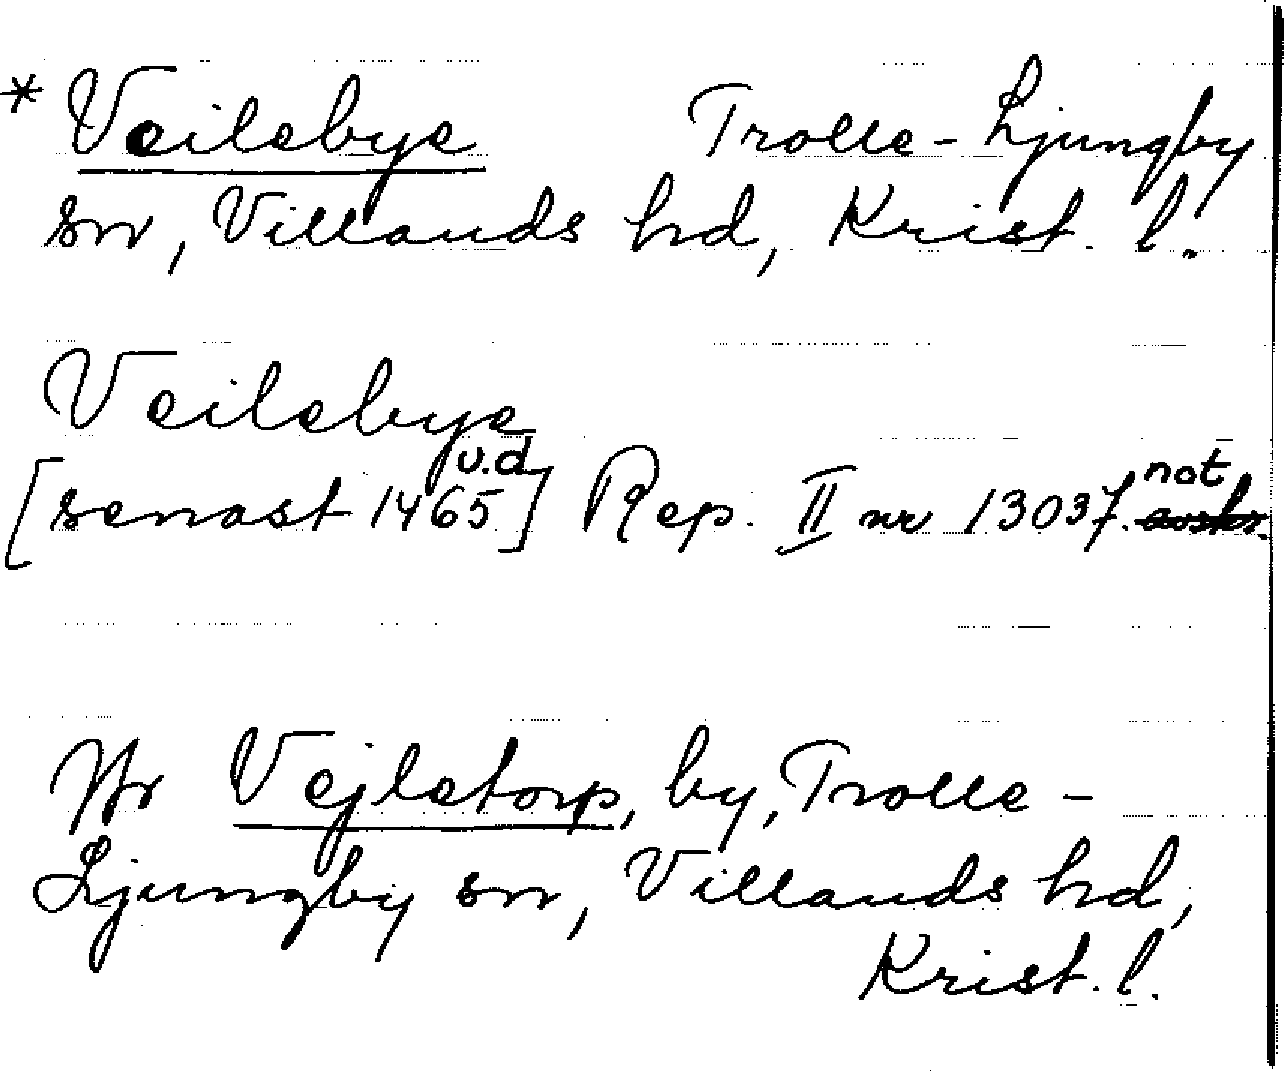 * Veilebye Trolle-Ljungby
sn, Villands hd, Krist. l.
Veilebye
[senast 1465 u.d] Rep. II nr 13037. not
Jfr Vejletorp, by, Trolle-
Ljungby sn, Villands hd,
Krist. l.